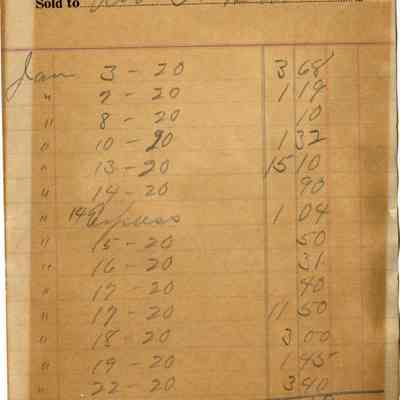 Sold to
Jan 3 - 20 3 68
" 7 - 20 1 19
" 8 - 20 10
" 10 - 20 1 32
" 13 - 20 15 10
" 14 - 20 90
" 14 express 1 04
" 15 - 20 50
" 16 - 20 31
" 17 - 20 40
" 17 - 20 11 50
" 18 - 20 3 00
" 19 - 20 1 45
" 22 - 20 3 40